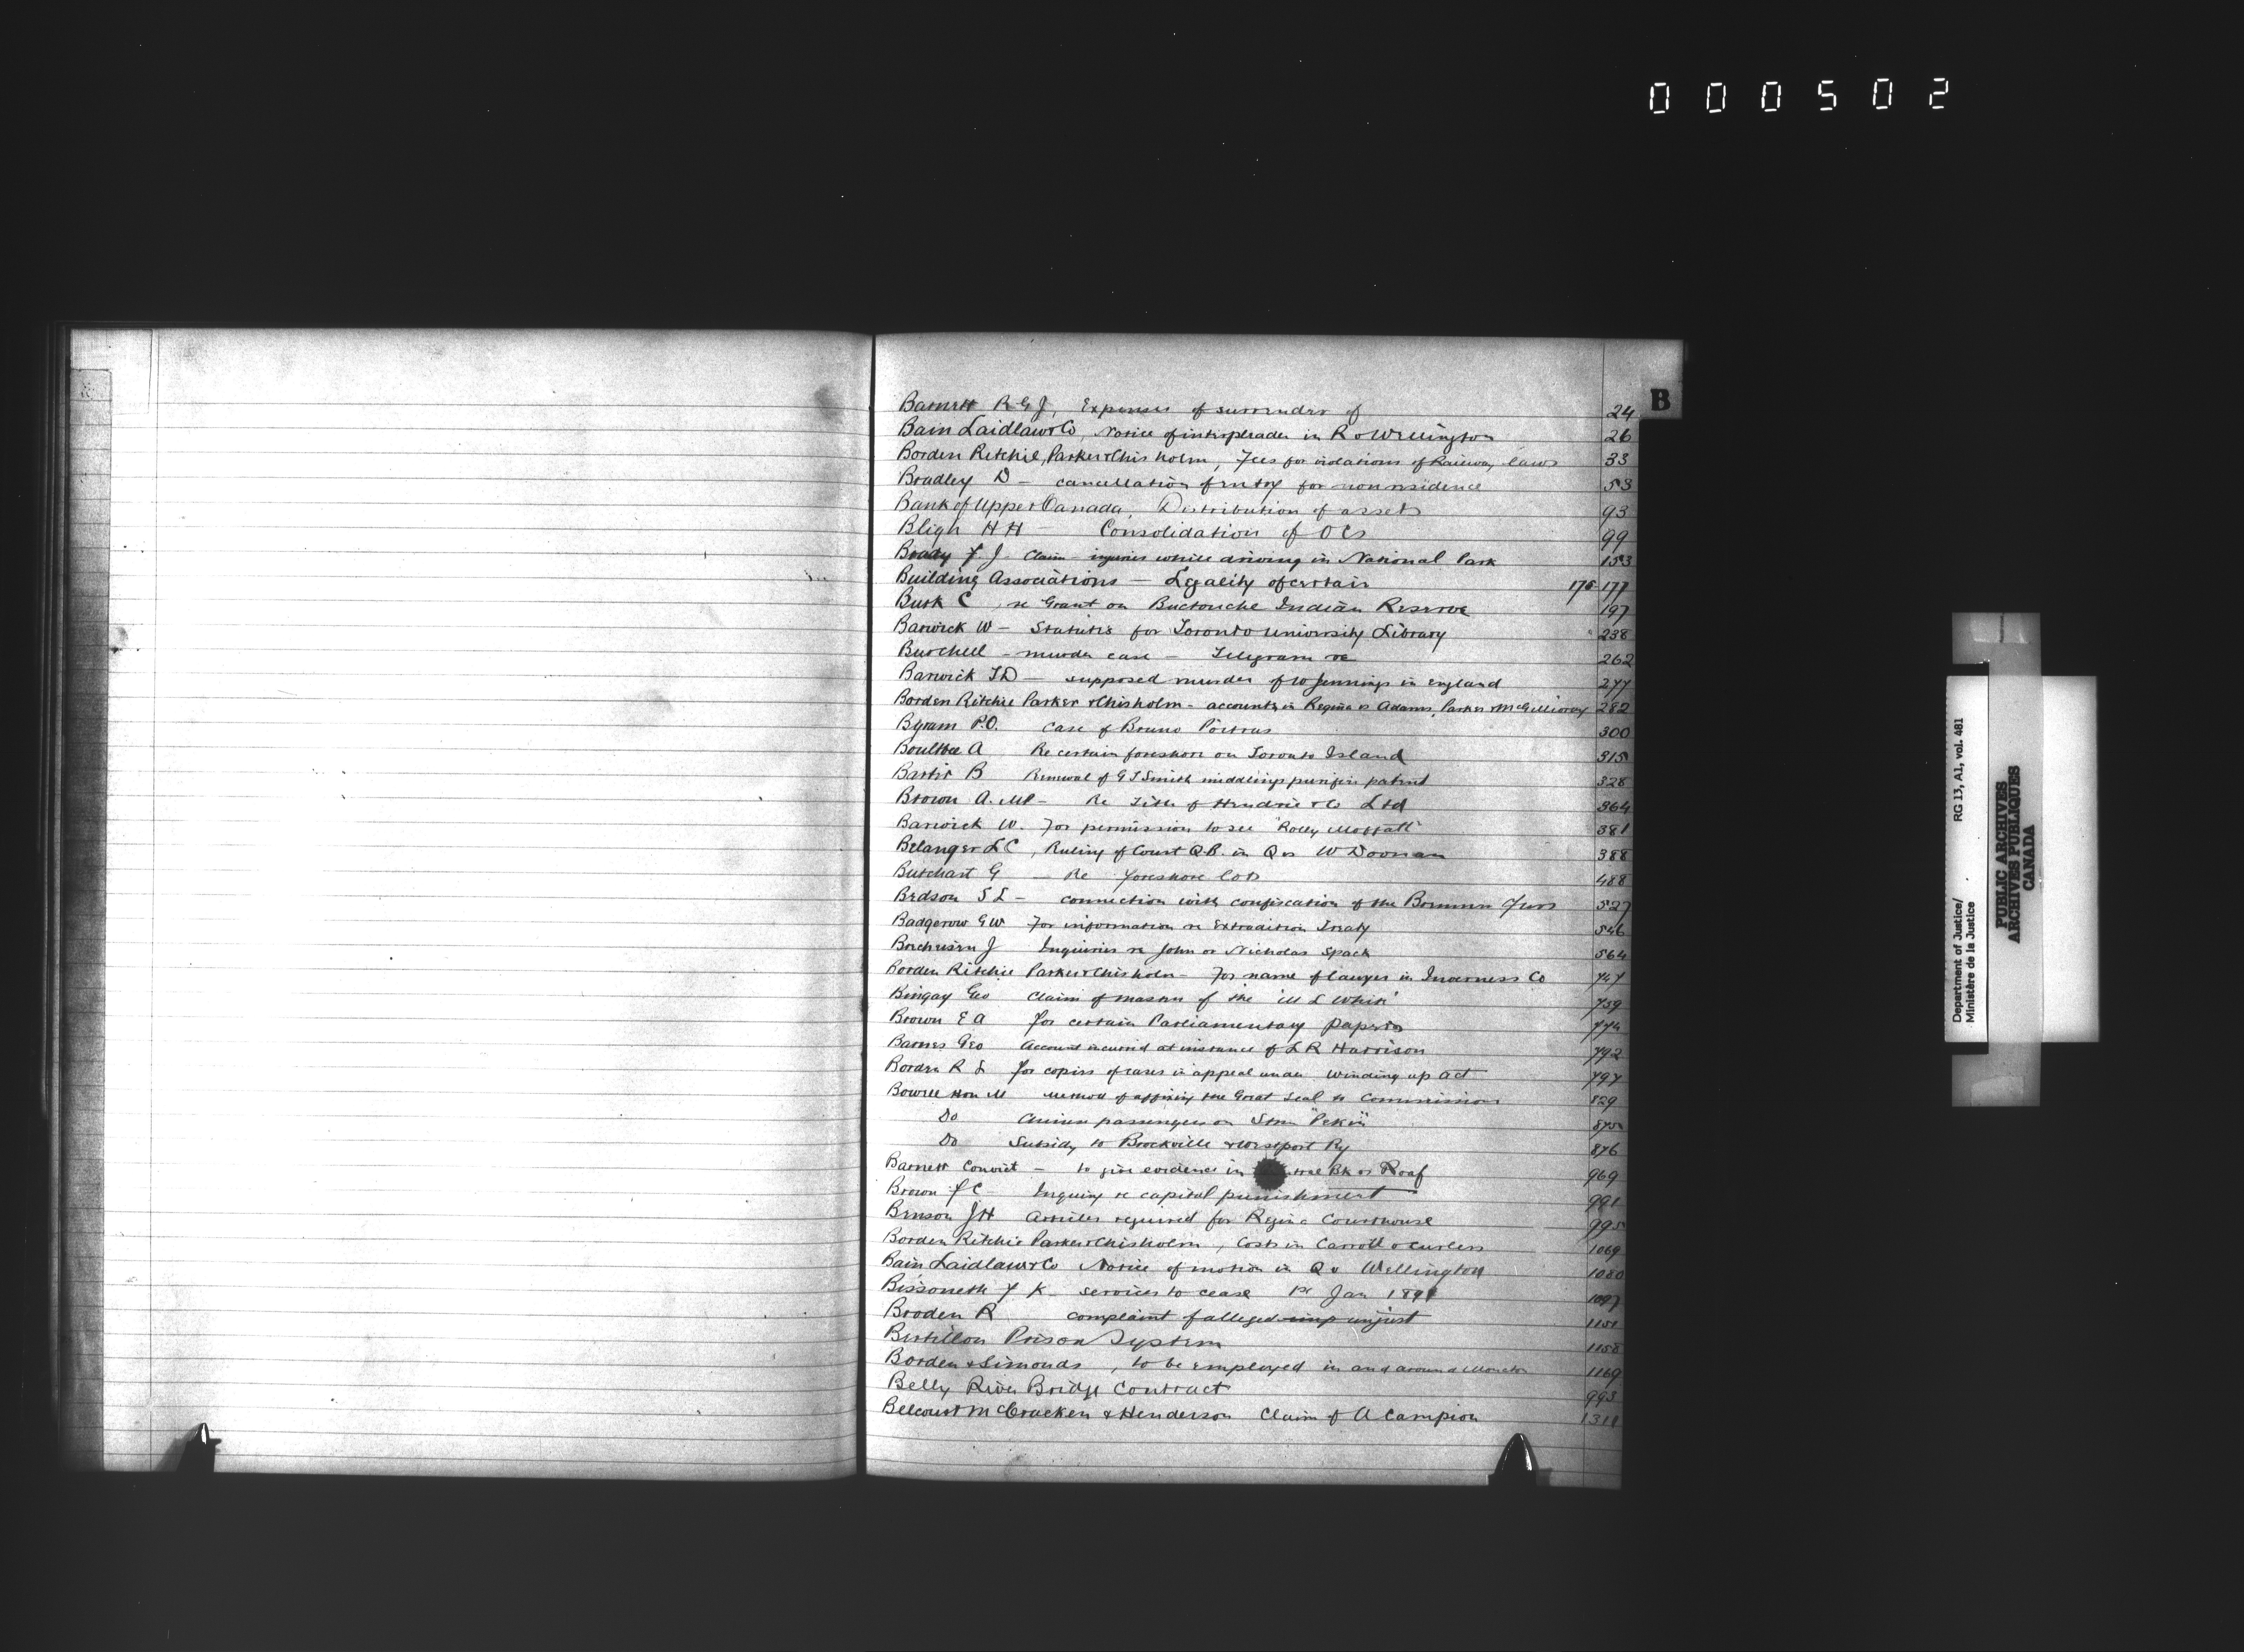 000502
B
Barnett R G J, Expenses of surrender of 24
Bain Laidlaw & Co, Notice of interpleader in R v Wellington 26
Borden Ritchie, Parker & Chisholm, Fees for violations of Railway laws 33
Bradley D - cancellation of entry for nonresidence 53
Bank of Upper Canada, Distribution of assets 93
Bligh H H - Consolidation of OCs 99
Brady F. J. Claim - injuries while driving in National Park 153
Building Associations - Legality of certain 175 177
Burk C, re Grant on Buctouche Indian Reserve 197
Barwick W - Statutes for Toronto University Library 238
Burchell - murder case - Telegram re 262
Barwick T D - supposed murder of W Jennings in England 277
Borden Ritchie Parker & Chisholm - accounts in Regina vs Adams, Parker & McGillivray 282
Byram P.O. case of Bruno Poitras 300
Boultbee A Re certain foreshore on Toronto Island 315
B Renewal of G T Smith middlings purifier patent 328
Brown A. MP - Re Title of Hendrie & Co Ltd 364
Barwick W. For permission to see "Rolly Moffatt" 381
Belanger L C, Ruling of Court Q.B. in Q vs W Doonan 388
Butchart G - Re foreshore lots 488
Bedson S L - connection with confiscation of the Bremner Furs 527
Badgerow G W For information re Extradition Treaty 546
J Inquiries re John or Nicholas Spack 564
Borden Ritchie Parker & Chisholm - For name of lawyer in Inverness Co 747
Bingay Geo Claim of master of the 'M L White' 759
Brown E A for certain Parliamentary papers 774
Barnes Geo Account incurred at instance of L R Harrison 792
Borden R L for copies of cases in appeal under winding up act 797
Bowell Hon M Method of affixing the Great Seal to Commissions 829
Do Chinese passengers on Stmr "Pekin" 875
Do Subsidy to Brockville & Westport Ry 876
Barnett Convict - to give evidence in Bk vs Roaf 969
Brown F C Inquiry re capital punishment 991
Benson J H Articles required for Regina Courthouse 995
Borden Ritchie Parker & Chisholm, Costs in Carroll v 1069
Bain Laidlaw & Co Notice of motion in Q v Wellington 1080
Bissonett F K - services to cease 1st Jan 1891 1097
Broden R complaint of alleged imp unjust 1151
Bertillon Prison System 1158
Borden & Simonds, to be employed in and around Moncton 1169
Belly River Bridge Contract 993
Belcourt McCracken & Henderson Claim of A Campion 1311
Department of Justice/ RG 13, A1, vol. 481
Ministère de la Justice
PUBLIC ARCHIVES
ARCHIVES PUBLIQUES
CANADA